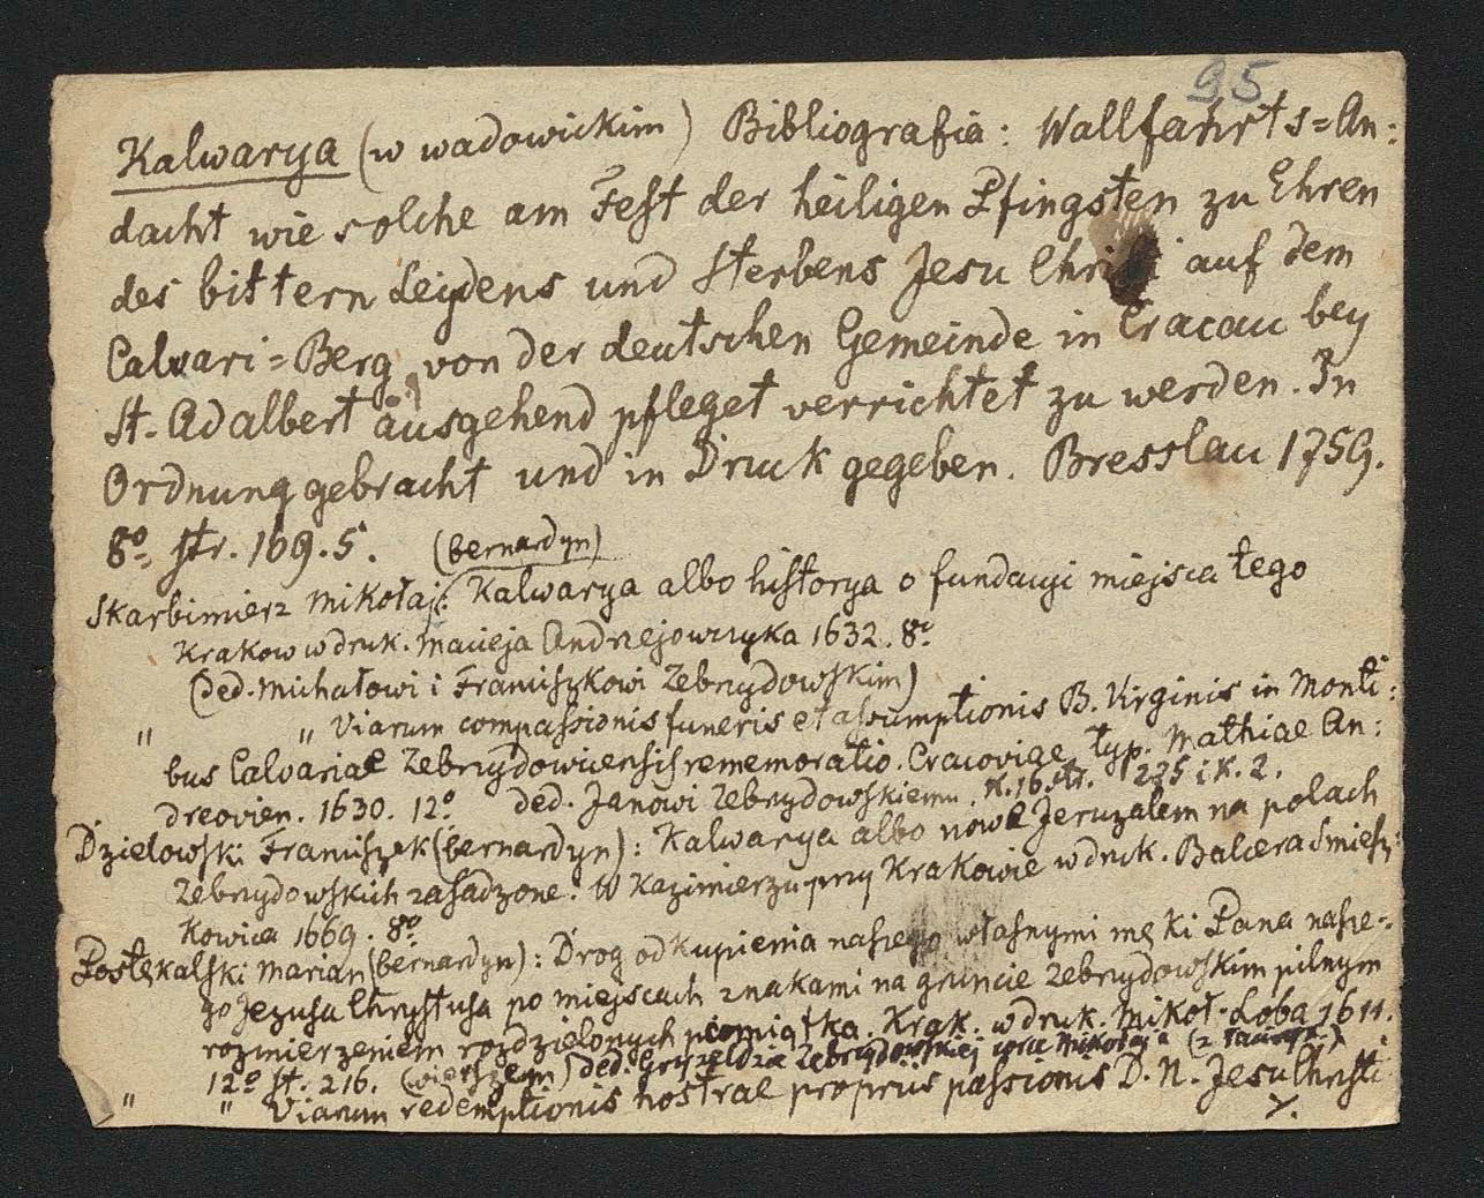 95
Kalwarya (w wadowickim) Bibliografia: Wallfahrts=An:
dacht wie solche am Fest der heiligen Pfingsten zu Ehren
des bittern Leydens und Sterbens Jesu Christi auf dem
Calvari=Berg von der deutschen Gemeinde in Cracau bey
St. Adalbert ausgehend pfleget verrichtet zu werden. In
Ordnung gebracht und in Druck gegeben. Bresslau 1759.
8º str. 169.5. (bernardyn)
Skarbimierz Mikołaj: Kalwarya albo historya o fundacyi miejsca tego
Krakow w druk. Macieja Andrzejowczyka 1632. 8º
(Ded. Michałowi i Franciszkowi Zebrzydowskim)
" " Viarum compassionis funeris et assumptionis B. Virginis in Monti:
bus Calvariae Zebrzydoviensis rememoratio. Cracoviae, typ. Mathiae An:
dreovien. 1630. 12º ded. Janowi Zebrzydowskiemu. K. 16 str. 225 i K. 2.
Dzielowski Franciszek (bernardyn): Kalwarya albo nowe Jeruzalem na polach
Zebrzydowskich zasadzone. W Kazimierzu przy Krakowie w druk. Balcera Smiesz:
kowica 1669. 8º
Postękalski Marian (bernardyn): Drog odkupienia naszego własnymi męki Pana nasze-
go Jezusa Chrystusa po miejscach znakami na gruncie Zebrzydowskim pilnym
rozmierzeniem rozdzielonych pamiątka. Krak. w druk. Mikoł. Loba 1611.
12º st. 216. (wierszem) Ded. Gryzeldzie Zebrzydowskiej corce Mikołaja
" " Viarum redemptionis nostrae propriis passionis D. N. Jesu Christi